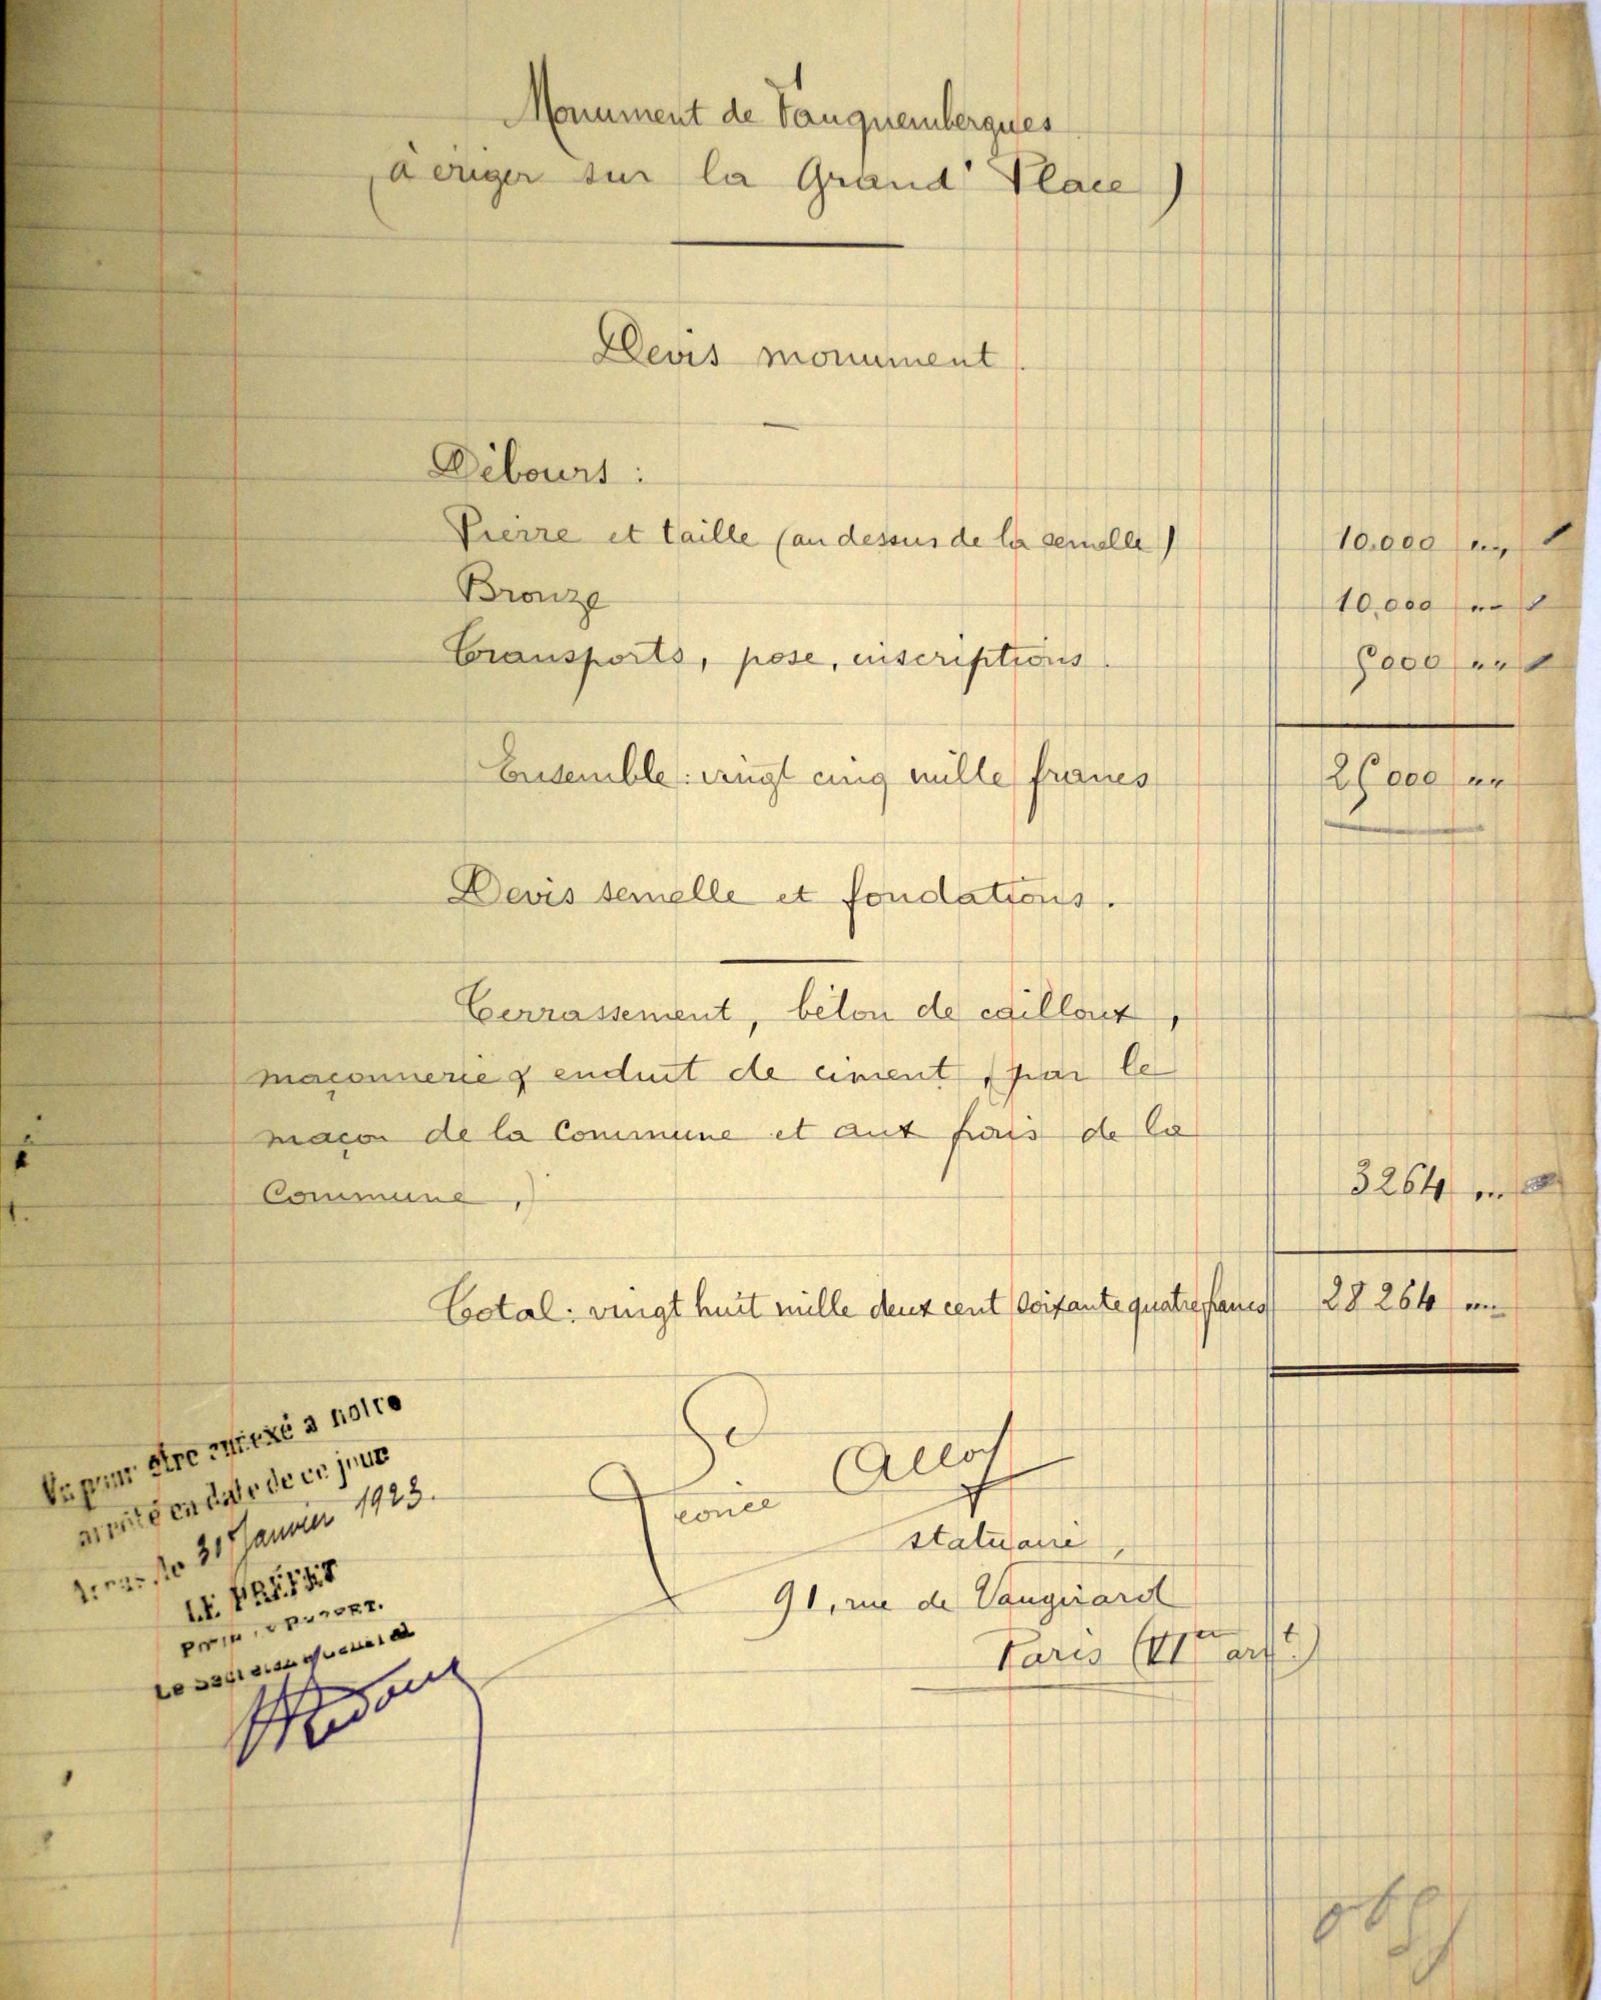 Monument de Fauquembergues
(à ériger sur la Grand' Place)
Devis monument.
Débours :
Pierre et taille (au dessus de la semelle) 10.000 "
Bronze 10,000 "
Transports, pose, inscriptions. 5000 "
Ensemble : vingt cinq mille francs 25000 "
Devis semelle et fondations.
Terrassement, béton de cailloux,
maçonnerie & enduit de ciment, par le
maçon de la Commune et aux frais de la
Commune, 3264 "
Total : vingt huit mille deux cent soixante quatre francs 28264 "
Vu pour être annexé à notre
arrêté en date de ce jour
Arras, le 31 Janvier 1923.
LE PRÉFET
Le Secrétaire Général
Allot
statuaire,
91, rue de Vaugirard
Paris (VIme arrt)